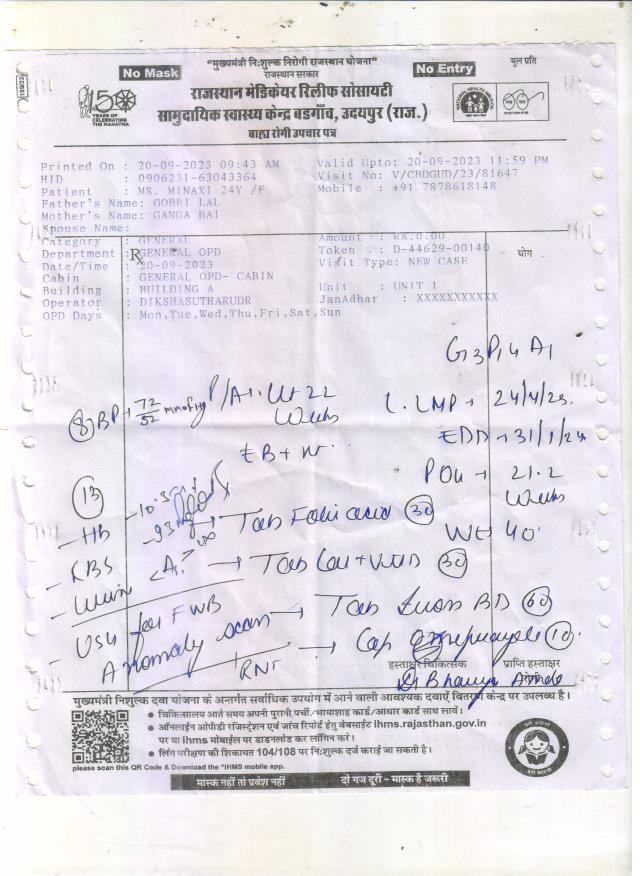 "मुख्यमंत्री निःशुल्क निरोगी राजस्थान योजना"
मुल प्रति
No Mask
राजस्थान सरकार
No Entry
राजस्थान मेडिकेयर रिलीफ सोसायटी
सामुदायिक स्वास्थ्य केन्द्र बडगाँव, उदयपुर (राज.)
बाह्य रोगी उपचार पत्र
150
YEARS OF
CELEBRATING
THE MAHATMA
Printed On : 20-09-2023 09:43 AM Valid Upto: 20-09-2023 11:59 PM
HID : 0906231-63043364 Visit No: V/CBDGUD/23/81647
Patient : MS. MINAXI 24Y /F Mobile : +91 7878618148
Father's Name: GOBRI LAL
Mother's Name: GANGA BAI
Spouse Name:
Category : GENERAL Amount : Rs.0.00
Department : GENERAL OPD Token : D-44629-00140
Rx
योग
Date/Time : 20-09-2023 Visit Type: NEW CASE
Cabin : GENERAL OPD- CABIN
Building : BUILDING A Unit : UNIT 1
Operator : DIKSHASUTHARUDR JanAadhar : XXXXXXXXXXX
OPD Days : Mon,Tue,Wed,Thu,Fri,Sat,Sun
G3P1 A1
BP → 72/52 mmofHg P/A → Ut 22 Weeks
L. LMP → 24/4/23.
EDD → 31/1/24
POG → 21.2 Weeks
Wt 40.
- HB - 10.3
- RBS - 93
- Urine
→ Tab Folic acid (30)
→ Tab Cal + Vit D (30)
- USG for FWB
Anomaly scan
→ Tab Iron BD (60)
→ Cap Omeprazole (10)
RNT
हस्ताक्षर चिकित्सक
प्राप्ति हस्ताक्षर
मुख्यमंत्री निशुल्क दवा योजना के अन्तर्गत सर्वाधिक उपयोग में आने वाली आवश्यक दवाऐं वितरण केन्द्र पर उपलब्ध है।
• चिकित्सालय आते समय अपनी पुरानी पर्ची/भामाशाह कार्ड/आधार कार्ड साथ लावें।
• ऑनलाईन ओपीडी रजिस्ट्रेशन एवं जांच रिपोर्ट हेतु वेबसाईट ihms.rajasthan.gov.in
पर या ihms मोबाईल पर डाउनलोड कर लॉगिन करे।
• लिंग परीक्षण की शिकायत 104/108 पर निःशुल्क दर्ज कराई जा सकती है।
please scan this QR Code & Download the "IHMS mobile app.
मास्क नहीं तो प्रवेश नहीं दो गज दूरी - मास्क है जरूरी